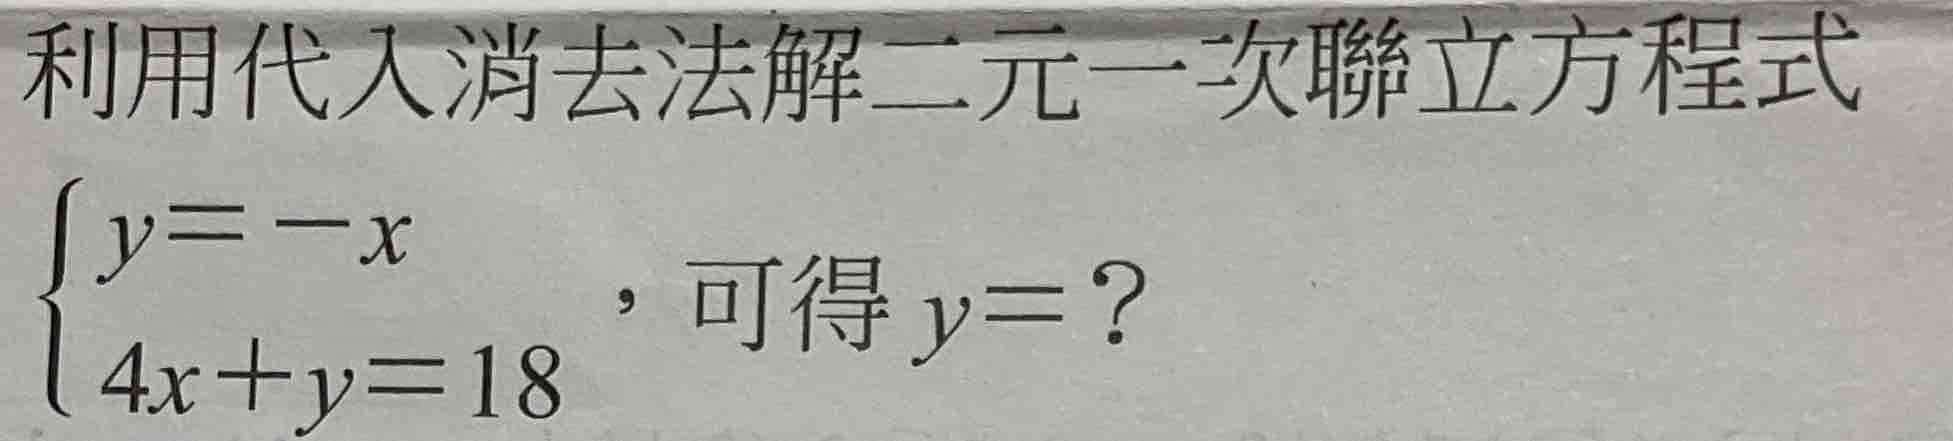 利用代入消去法解二元一次聯立方程式
y＝－x
4x＋y＝18
，可得 y＝？